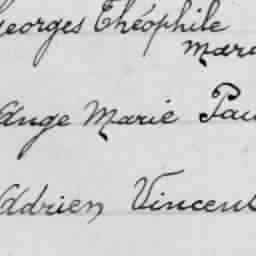 Georges Théophile
Mari
Ange Marie Pau
Adrien Vincent